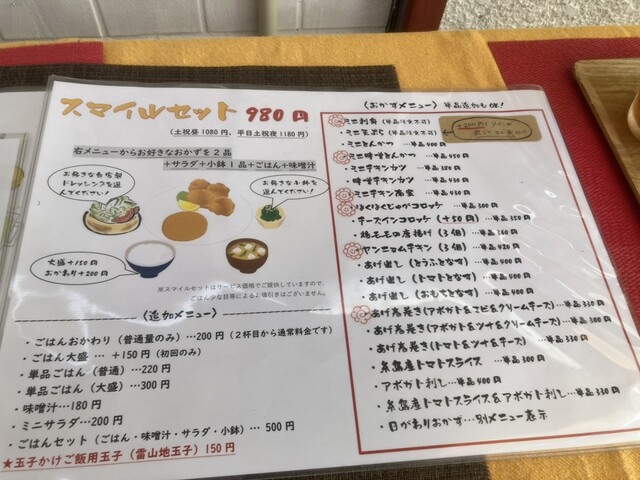 スマイルセット 980円
(土祝昼1080円、平日土祝夜1180円)
右メニューからお好きなおかずを2品
+サラダ+小鉢1品+ごはん+味噌汁
お好きな自家製
ドレッシングを選
んでください!
お好きな小鉢を
選んでください!
大盛+150円
おかわり+200円
※スマイルセットはサービス価格でご提供していますので、
ごはん少な目等によるお値引きはございません。
〈追加メニュー〉
・ごはんおかわり(普通量のみ)…200円(2杯目から通常料金です)
・ごはん大盛 … +150円(初回のみ)
・単品ごはん(普通)…220円
・単品ごはん(大盛)…300円
・味噌汁…180円
・ミニサラダ…200円
・ごはんセット(ごはん・味噌汁・サラダ・小鉢)… 500円
★玉子かけご飯用玉子(雷山地玉子)150円
〈おかずメニュー〉 単品追加もOK!
ミニ刺身(単品注文不可)
・ミニ天ぷら(単品注文不可)
+200円
・ミニとんかつ …単品400円
ミニ味噌とんかつ …単品450円
・ミニチキンカツ …単品380円
・味噌チキンカツ …単品430円
ミニチキン南蛮 …単品430円
ほくほくじゃがコロッケ …単品300円
・チーズインコロッケ(+50円)…単品350円
・鶏モモの唐揚げ(3個)…単品360円
ヤンニョムチキン(3個)…単品420円
・あげ出し(とうふとなす)…単品400円
・あげ出し(トマトとなす)…単品400円
・あげ出し(おもちとなす)…単品400円
あげ春巻き(アボガド&エビ&クリームチーズ)…単品330円
・あげ春巻き(アボガド&ツナ&クリームチーズ)…単品330円
・あげ春巻き(トマト&ツナ&チーズ)…単品330円
・糸島産トマトスライス …単品300円
・アボガド刺し…単品400円
・糸島産トマトスライス&アボガド刺し…単品330円
・日がわりおかず…別メニュー表示